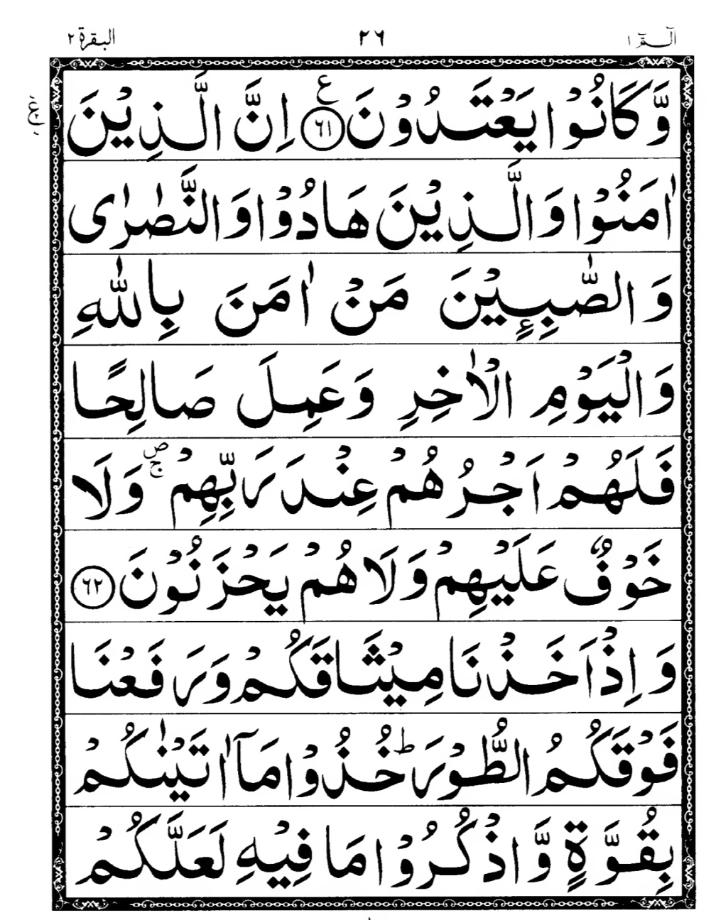 الٓمّٓ ١ ٢٦ البقرة ٢
ع
وَّكَانُوْا يَعْتَدُوْنَ ع ۝٦١ اِنَّ الَّذِيْنَ
اٰمَنُوْا وَالَّذِيْنَ هَادُوْا وَالنَّصٰرٰى
وَالصّٰبِـِٕيْنَ مَنْ اٰمَنَ بِاللّٰهِ
وَالْيَوْمِ الْاٰخِرِ وَعَمِلَ صَالِحًا
فَلَهُمْ اَجْرُهُمْ عِنْدَ رَبِّهِمْ ص ج وَلَا
خَوْفٌ عَلَيْهِمْ وَلَا هُمْ يَحْزَنُوْنَ ۝٦٢
وَاِذْ اَخَذْنَا مِيْثَاقَكُمْ وَرَفَعْنَا
فَوْقَكُمُ الطُّوْرَ ؕ خُذُوْا مَاۤ اٰتَيْنٰكُمْ
بِقُوَّةٍ وَّاذْكُرُوْا مَا فِيْهِ لَعَلَّكُمْ